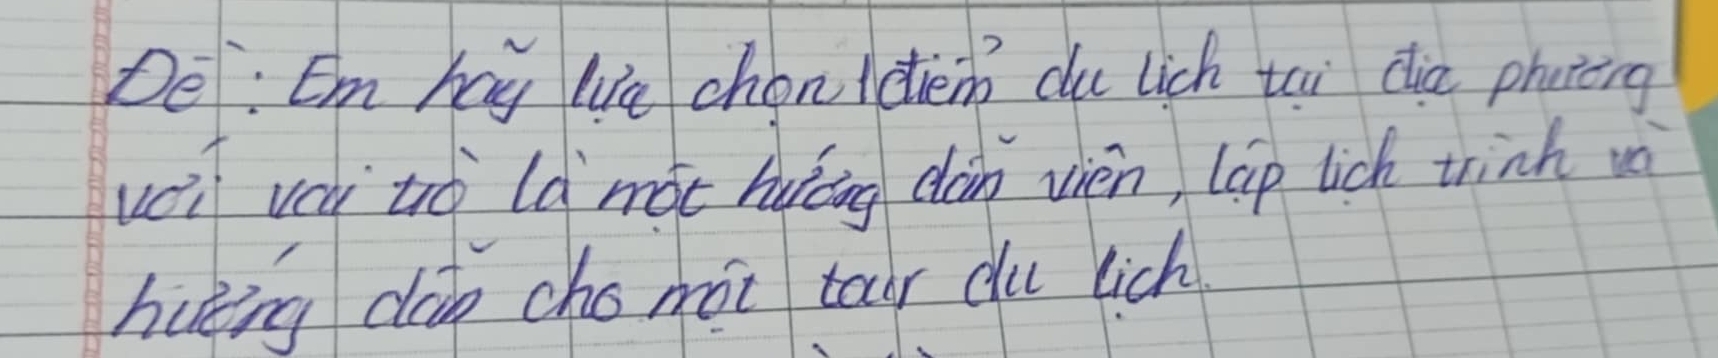 Đề: Em hãy lựa chọn 1 điểm du lịch tại địa phương
với vai trò là một hướng dẫn viên, lập lịch trình và
hướng dẫn cho một tour du lịch.